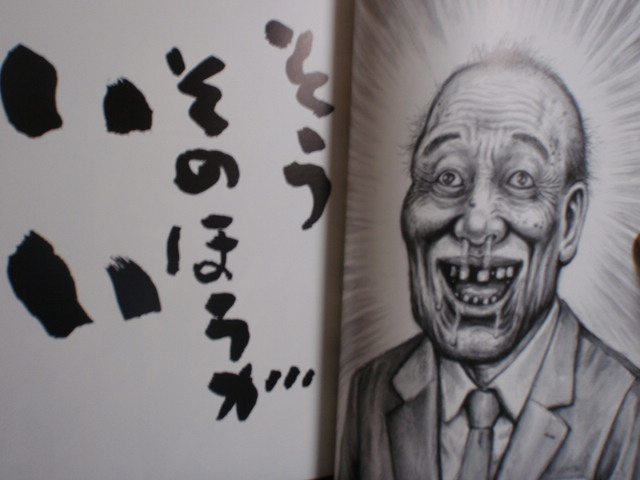 そう
そのほうが…
いい